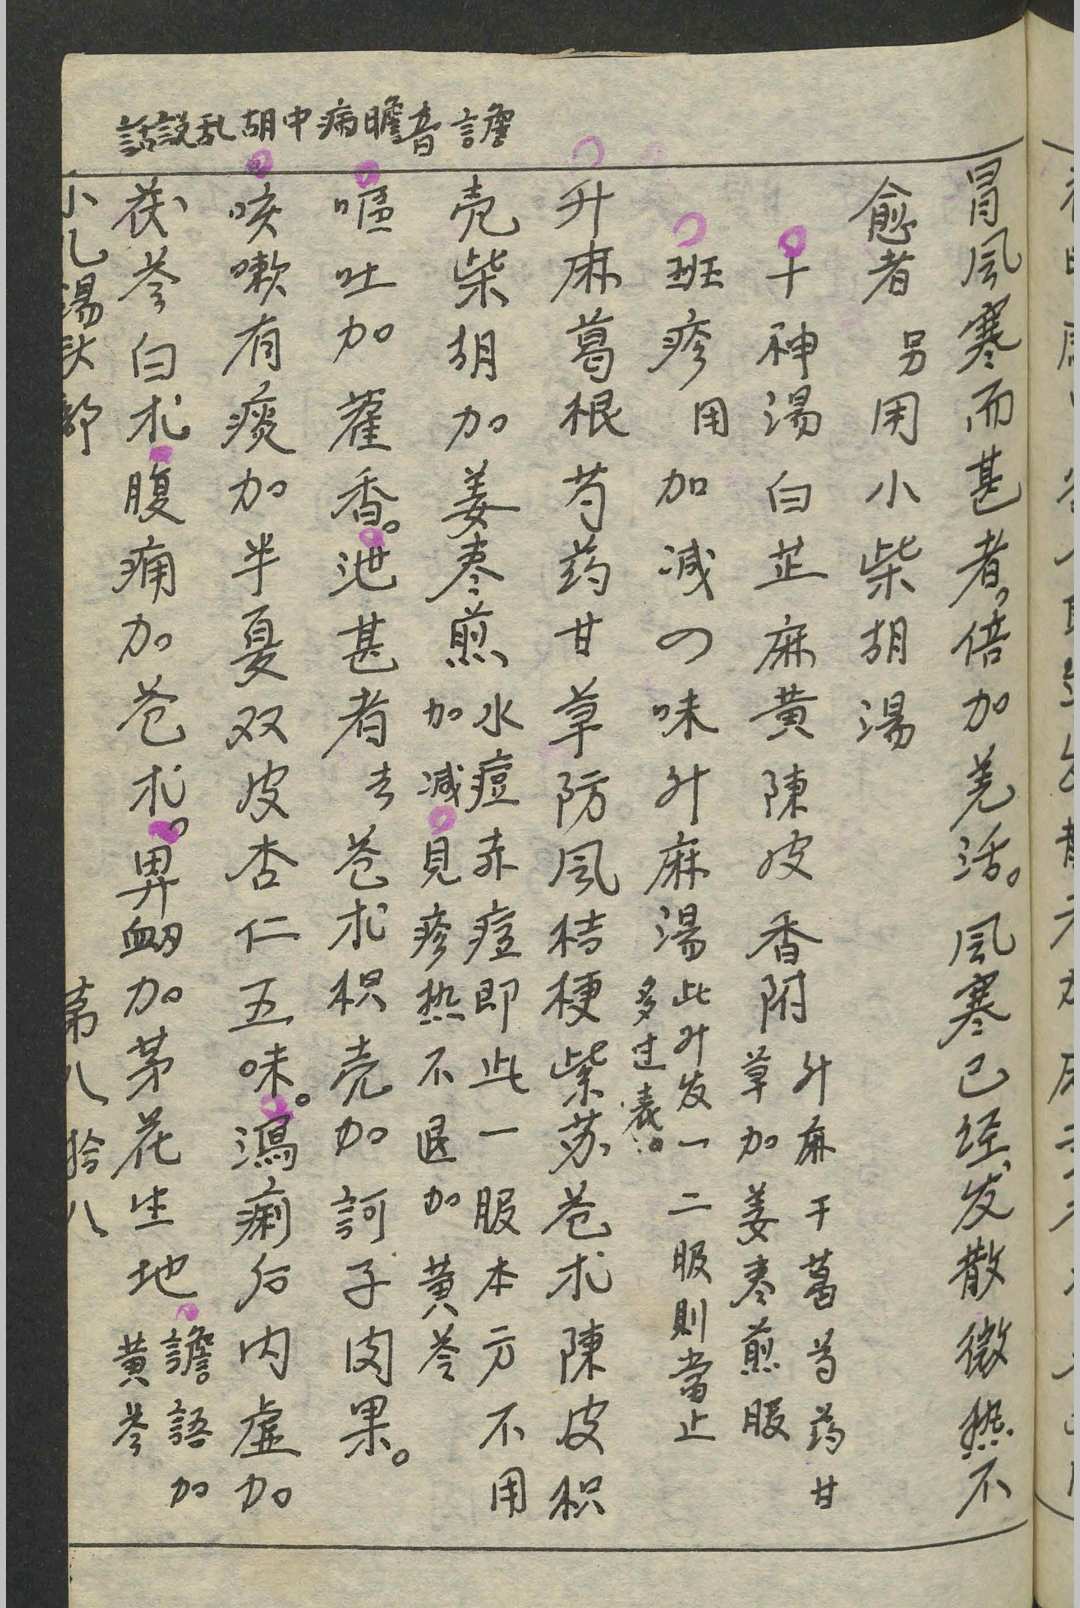 譫音瞻病中胡乱說話
冒風寒而甚者，倍加羌活。風寒已经发散微热不
愈者另用小柴胡湯
十神湯白芷麻黄陳皮香附升麻干葛芍药甘
草加姜枣煎服
班疹用加减四味升麻湯此升发一二服則當止
多过表。
升麻葛根芍药甘草防風桔梗紫苏苍朮陳皮枳
壳柴胡加姜枣煎水痘赤痘即此一服本方不用
加减見疹热不退加黄芩
嘔吐加藿香。泄甚者去苍朮枳壳加訶子肉果。
咳嗽有痰加半夏双皮杏仁五味。瀉痢后内虚加
茯苓白朮腹痛加苍朮。鼻衂加茅花生地譫語加
黄芩
小儿湯头部 第八拾八